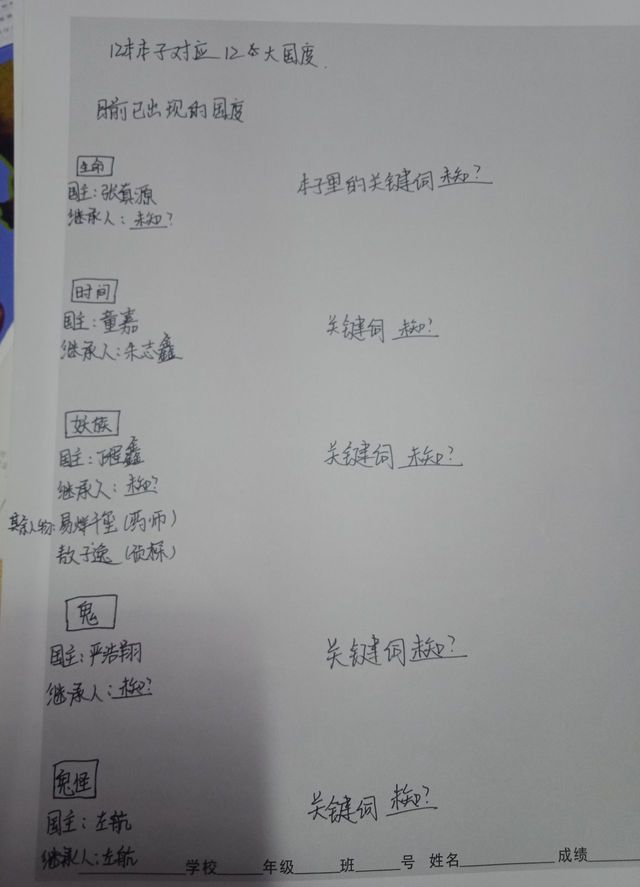 12本本子对应12个大国度.
目前已出现的国度
生命
国主:张真源
本子里的关键词 未知?
继承人:未知?
时间
国主:童嘉
关键词 未知?
继承人:朱志鑫
妖族
国主:丁程鑫
关键词 未知?
继承人:未知?
其余人物:易烊千玺(药师)
敖子逸(侦探)
鬼
国主:严浩翔
关键词 未知?
继承人:未知?
鬼怪
国主:左航
关键词 未知?
继承人:左航
学校 年级 班 号 姓名 成绩